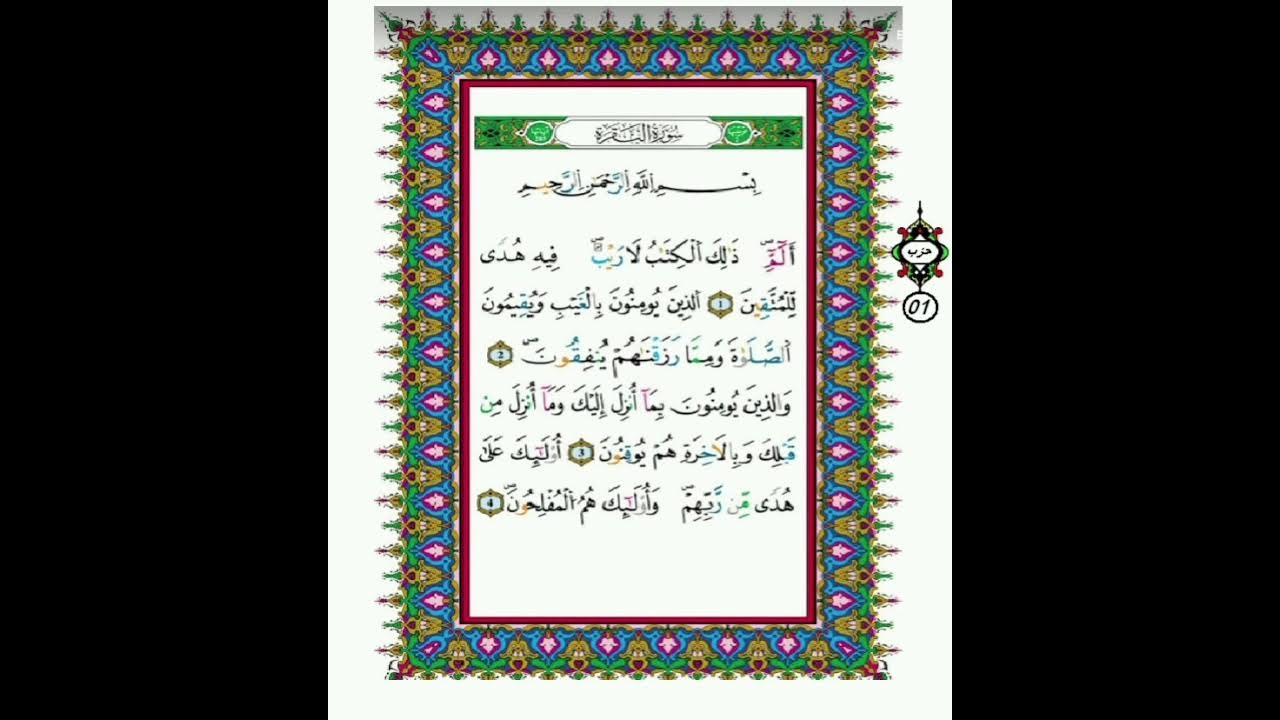 سُورَةُ الْبَقَرَةِ
بِسْمِ اللَّهِ الرَّحْمَٰنِ الرَّحِيمِ
أَلَٓمِّٓۖ ذَٰلِكَ اَ۬لْكِتَٰبُ لَا رَيْبَۖ فِيهِ هُدٗى
لِّلْمُتَّقِينَ 1 اَ۬لذِينَ يُومِنُونَ بِالْغَيْبِ وَيُقِيمُونَ
اَ۬لصَّلَوٰةَ وَمِمَّا رَزَقْنَٰهُمْ يُنفِقُونَۖ 2
وَالذِينَ يُومِنُونَ بِمَآ أُنزِلَ إِلَيْكَ وَمَآ أُنزِلَ مِن
قَبْلِكَ وَبِالَاخِرَةِ هُمْ يُوقِنُونَ 3 أُوْلَٰٓئِكَ عَلَىٰ
هُدٗى مِّن رَّبِّهِمْۖ وَأُوْلَٰٓئِكَ هُمُ اُ۬لْمُفْلِحُونَۖ 4
حزب
01